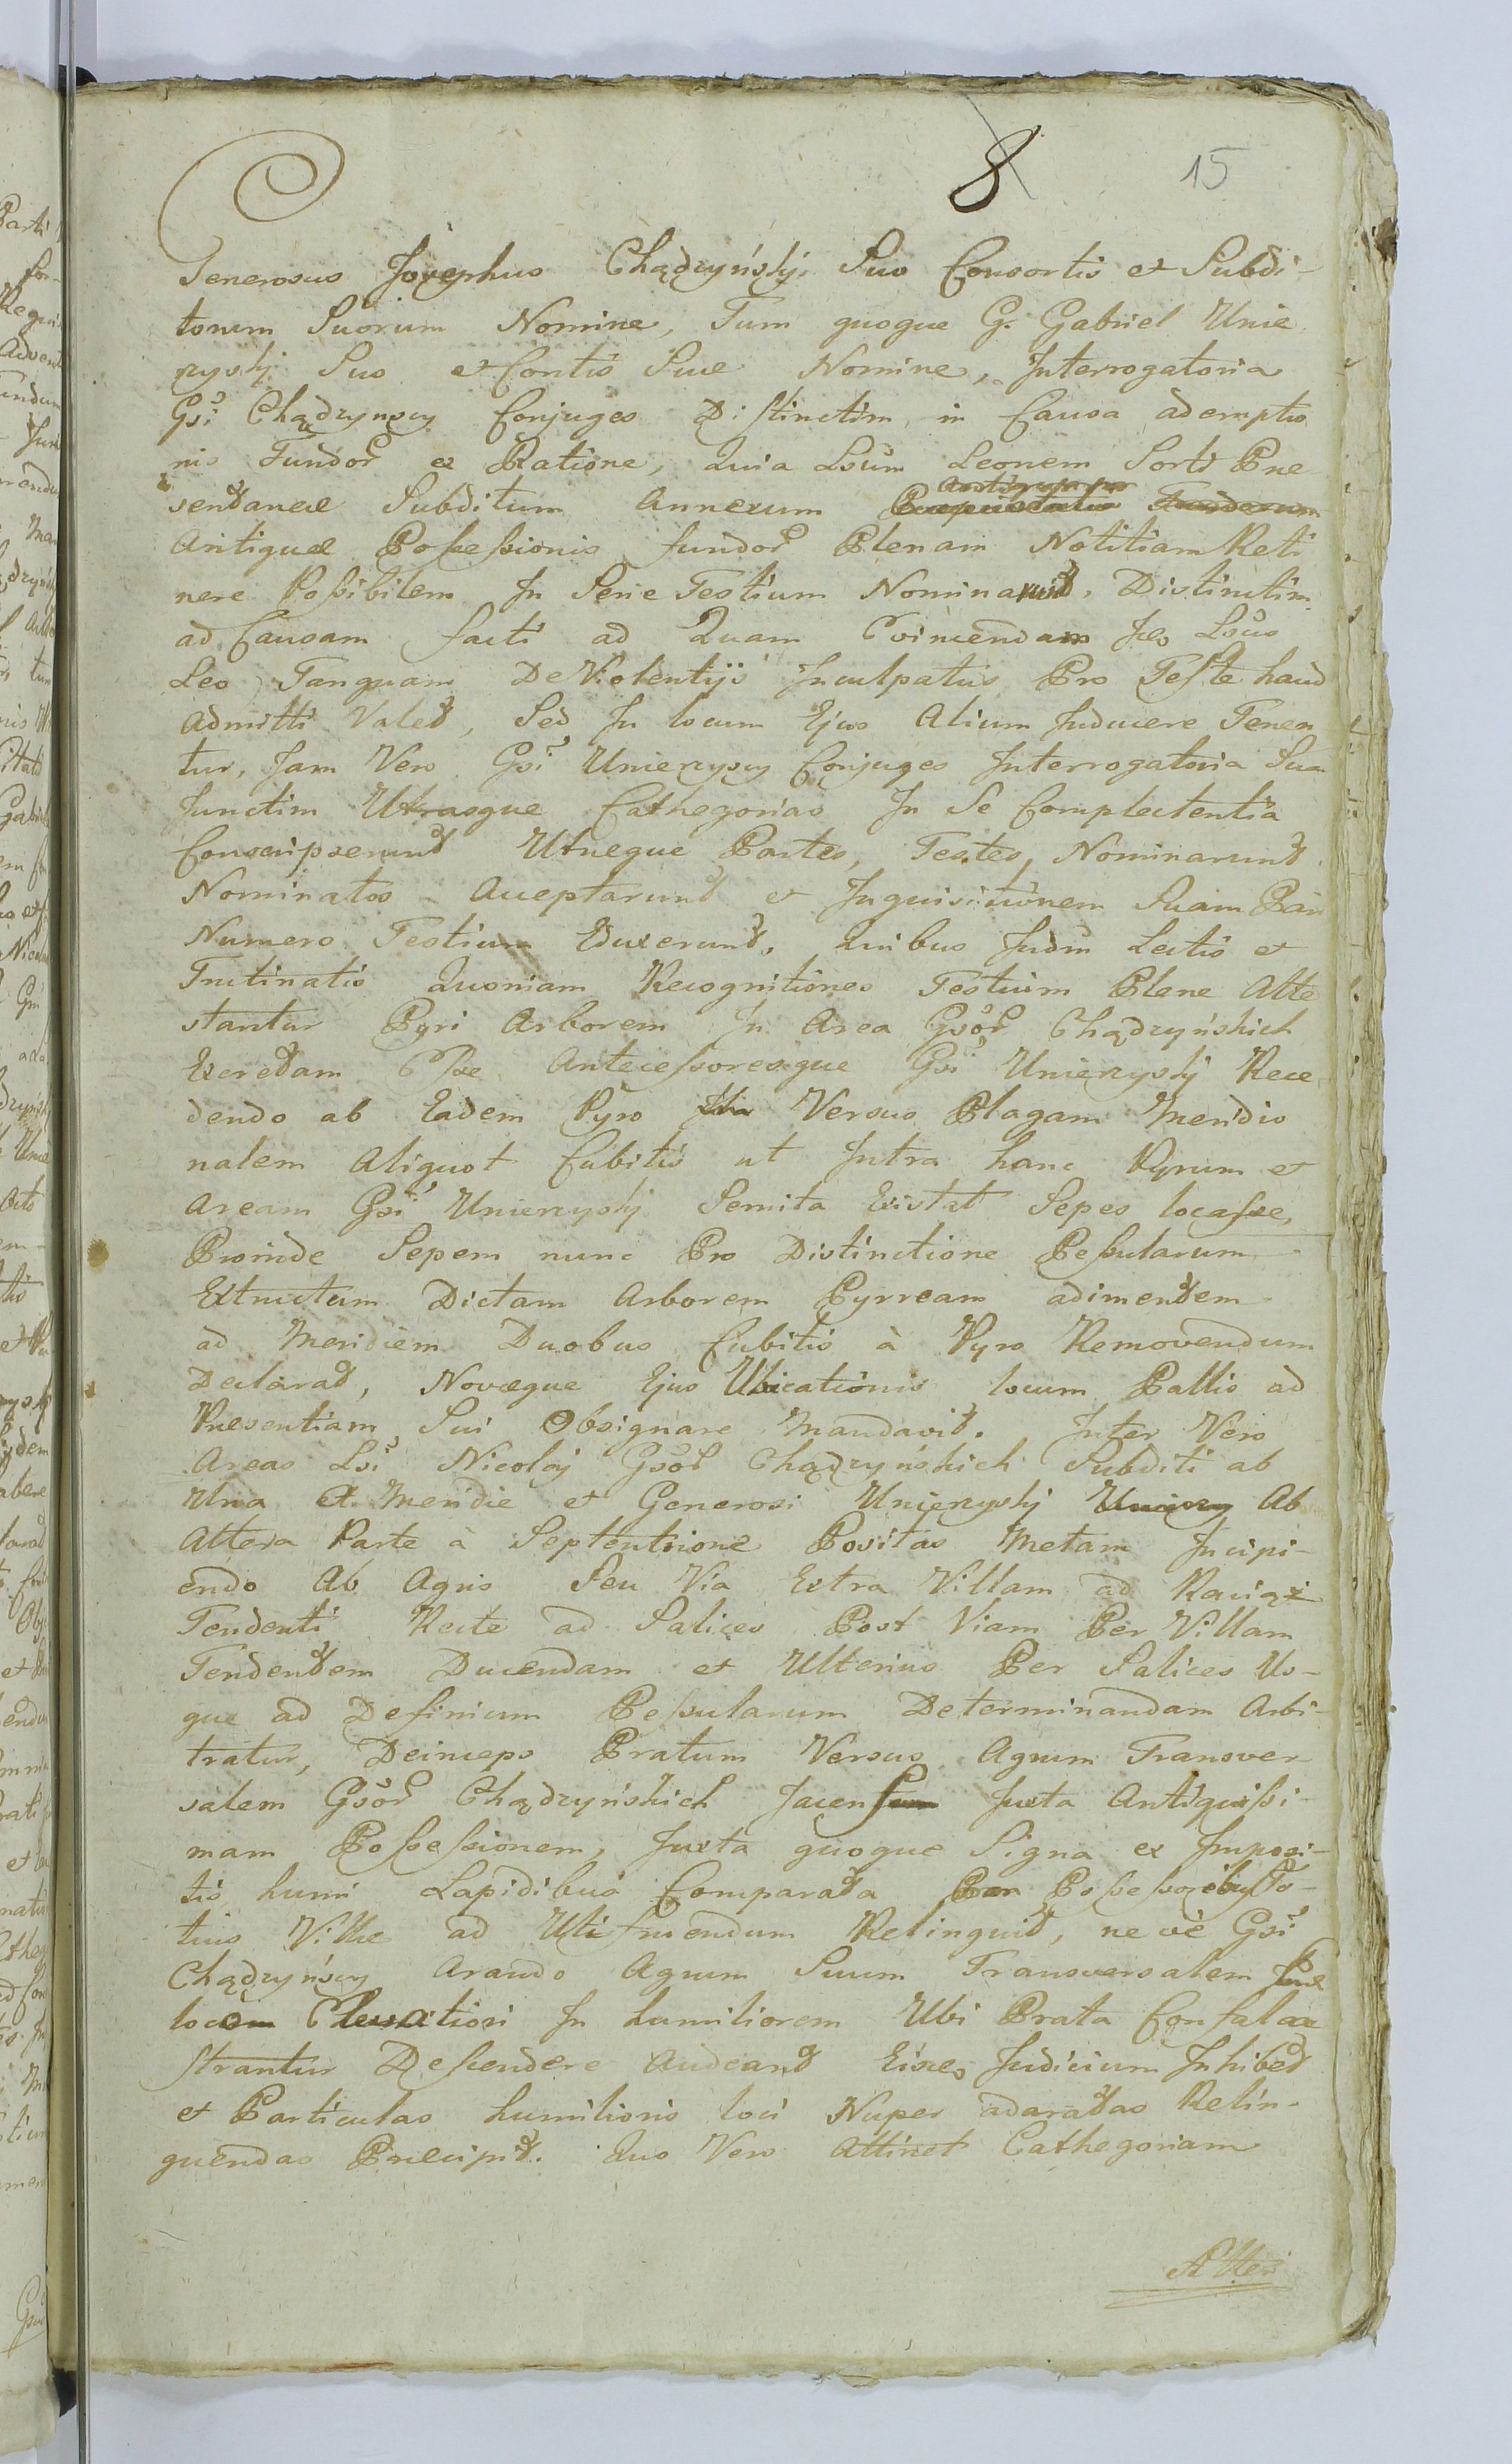 8 15
Generosus Josephus Chądzyńskj, Suo Consortis et Subdi-
torum Suorum Nomine, Tum quoque G. Gabriel Unie
ryskj Suo et Contis Suae Nomine, Interrogatoria
Gsi Chądzynscy Conjuges Distinctim, in Causa ademptio
nis Fundor ex Ratione, Quia Lsum Leonem Sorti Prae
sentaneae Subditum Annexum
Antiquae Possessionis fundor Plenam Notitiam Reti
nere Possibilem In Serie Testium Nominarunt, Distinctim
ad Causam facti ad Quam Evincendam Lsus
Leo Tanquam De Violentijs Inculpatus Pro Teste haud
Admitti Valet, Sed In locum Ejus Alium Inducere Tenen
tur, Jam Vero Gsi Unierzyscy Conjuges Interrogatoria Sua
Junctim Utrasque Cathegorias In Se Complectentia
Conscripserunt Utraeque Partes, Testes, Nominarunt
Nominatos Acceptarunt et Inquisitionem Suam Pari
Numero Testium Eduxerunt. Quibus Judm Lectis et
Trutinatis Quoniam Recognitiones Testium Plene Atte
stantur Pyri Arborem In Area Gsor Chądzyńskich
Excretam Esse Antecessoresque Gsi Unierzyskj Rece
dendo ab Eadem Pyro Versus Plagam Meridio
nalem Aliquot Cubitis ut Intra hanc Pyrum et
Aream Gsi Unierzyskj Semita Existat Sepes locasse,
Proinde Sepem nunc Pro Distinctione Pessularum
Extructam Dictam Arborem Pyrream adimentem
ad Meridiem Duobus Cubitis à Pyro Removendum
Declarat, Novaeque Ejus Ubicationis locum Pallis ad
Praesentiam Sui Obsignare Mandavit. Inter Vero
Areas Lsi Nicolaj Gsor Chądzyńskich Subditi ab
Una A Meridie et Generosi Unierzyskj Ab
Altera Parte à Septentrione Positas Metam Incipi-
endo Ab Agris Seu Via Extra Villam ad Raciąż
Tendenti Recte ad Salices Post Viam Per Villam
Tendentem Ducendam et Ulterius Per Salices Us-
que ad Definium Pessularum Determinandam Arbi-
tratur, Deinceps Pratum Versus Agrum Transver
salem Gsor Chądzyńskich Jacens Juxta Antiquissi-
mam Possessionem, Juxta quoque Signa ex Imposi-
tis humi Lapidibus Comparata Possessoribus To-
tius Villae ad Uti fruendum Relinquit, ne vè Gsi
Chądzyńscy Arando Agrum Suum Transversalem
Elevatiori In humiliorem Ubi Prata Confalca
strantur Descendere Audeant Eisce Judicium Inhibet
et Particulas humilioris loci Nuper adaratas Relin-
quendas Praecipit. Quo Vero Attinet Cathegoriam
Alteri